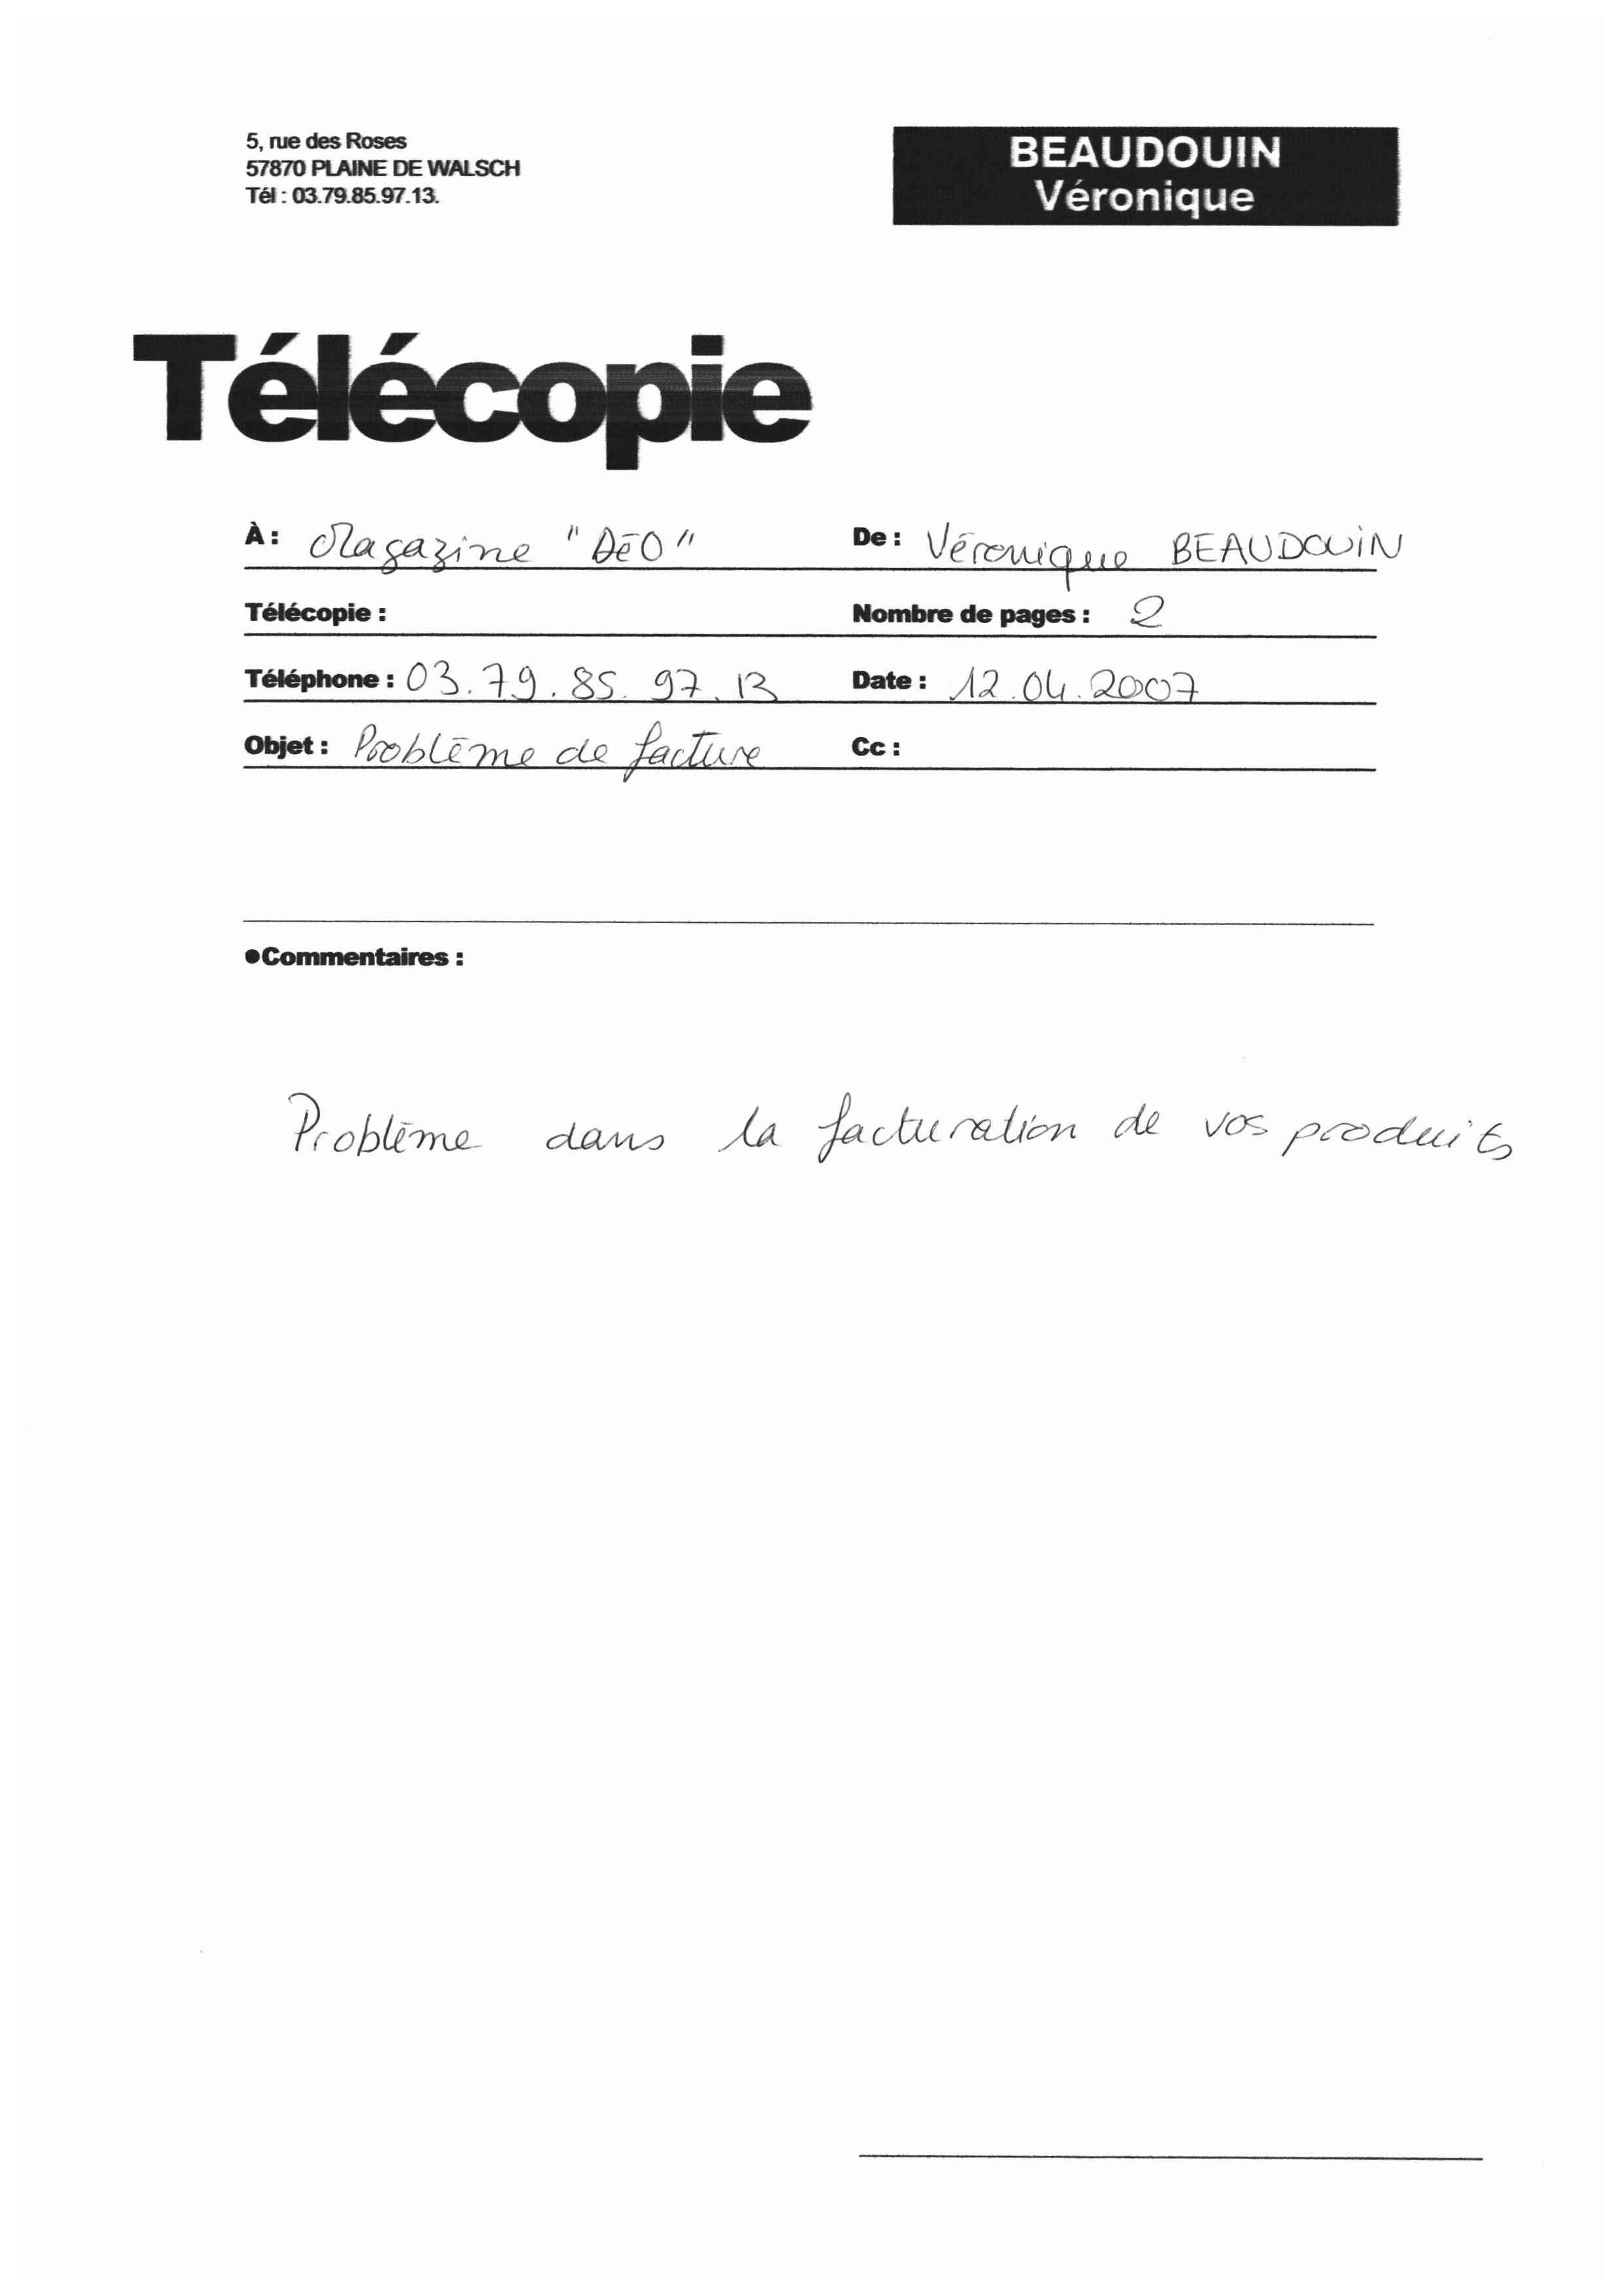 5, rue des Roses
57870 PLAINE DE WALSCH
Tél : 03.79.85.97.13.
BEAUDOUIN
Véronique
Télécopie
À : Magazine "DéO" De : Véronique BEAUDOUIN
Télécopie : Nombre de pages : 2
Téléphone : 03.79.85.97.13 Date : 12.04.2007
Objet : Problème de facture Cc :
●Commentaires :
Problème dans la facturation de vos produits